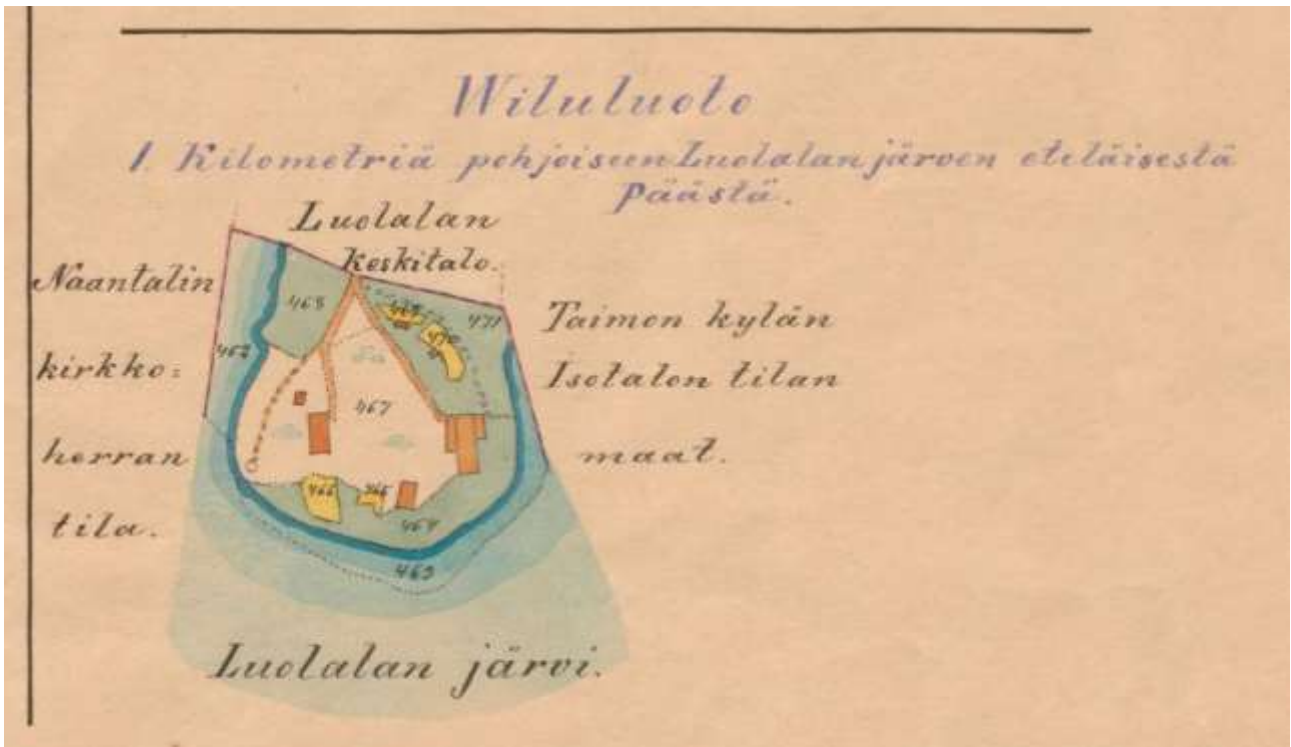 Wiluluoto
1 Kilometriä pohjoiseen Luolalan järven eteläisestä
Päästä.
Luolalan
keskitalo.
Naantalin
kirkko=
herran
tila.
Taimon kylän
Isotalon tilan
maat.
468
471
470
462
467
466
464
463
Luolalan järvi.